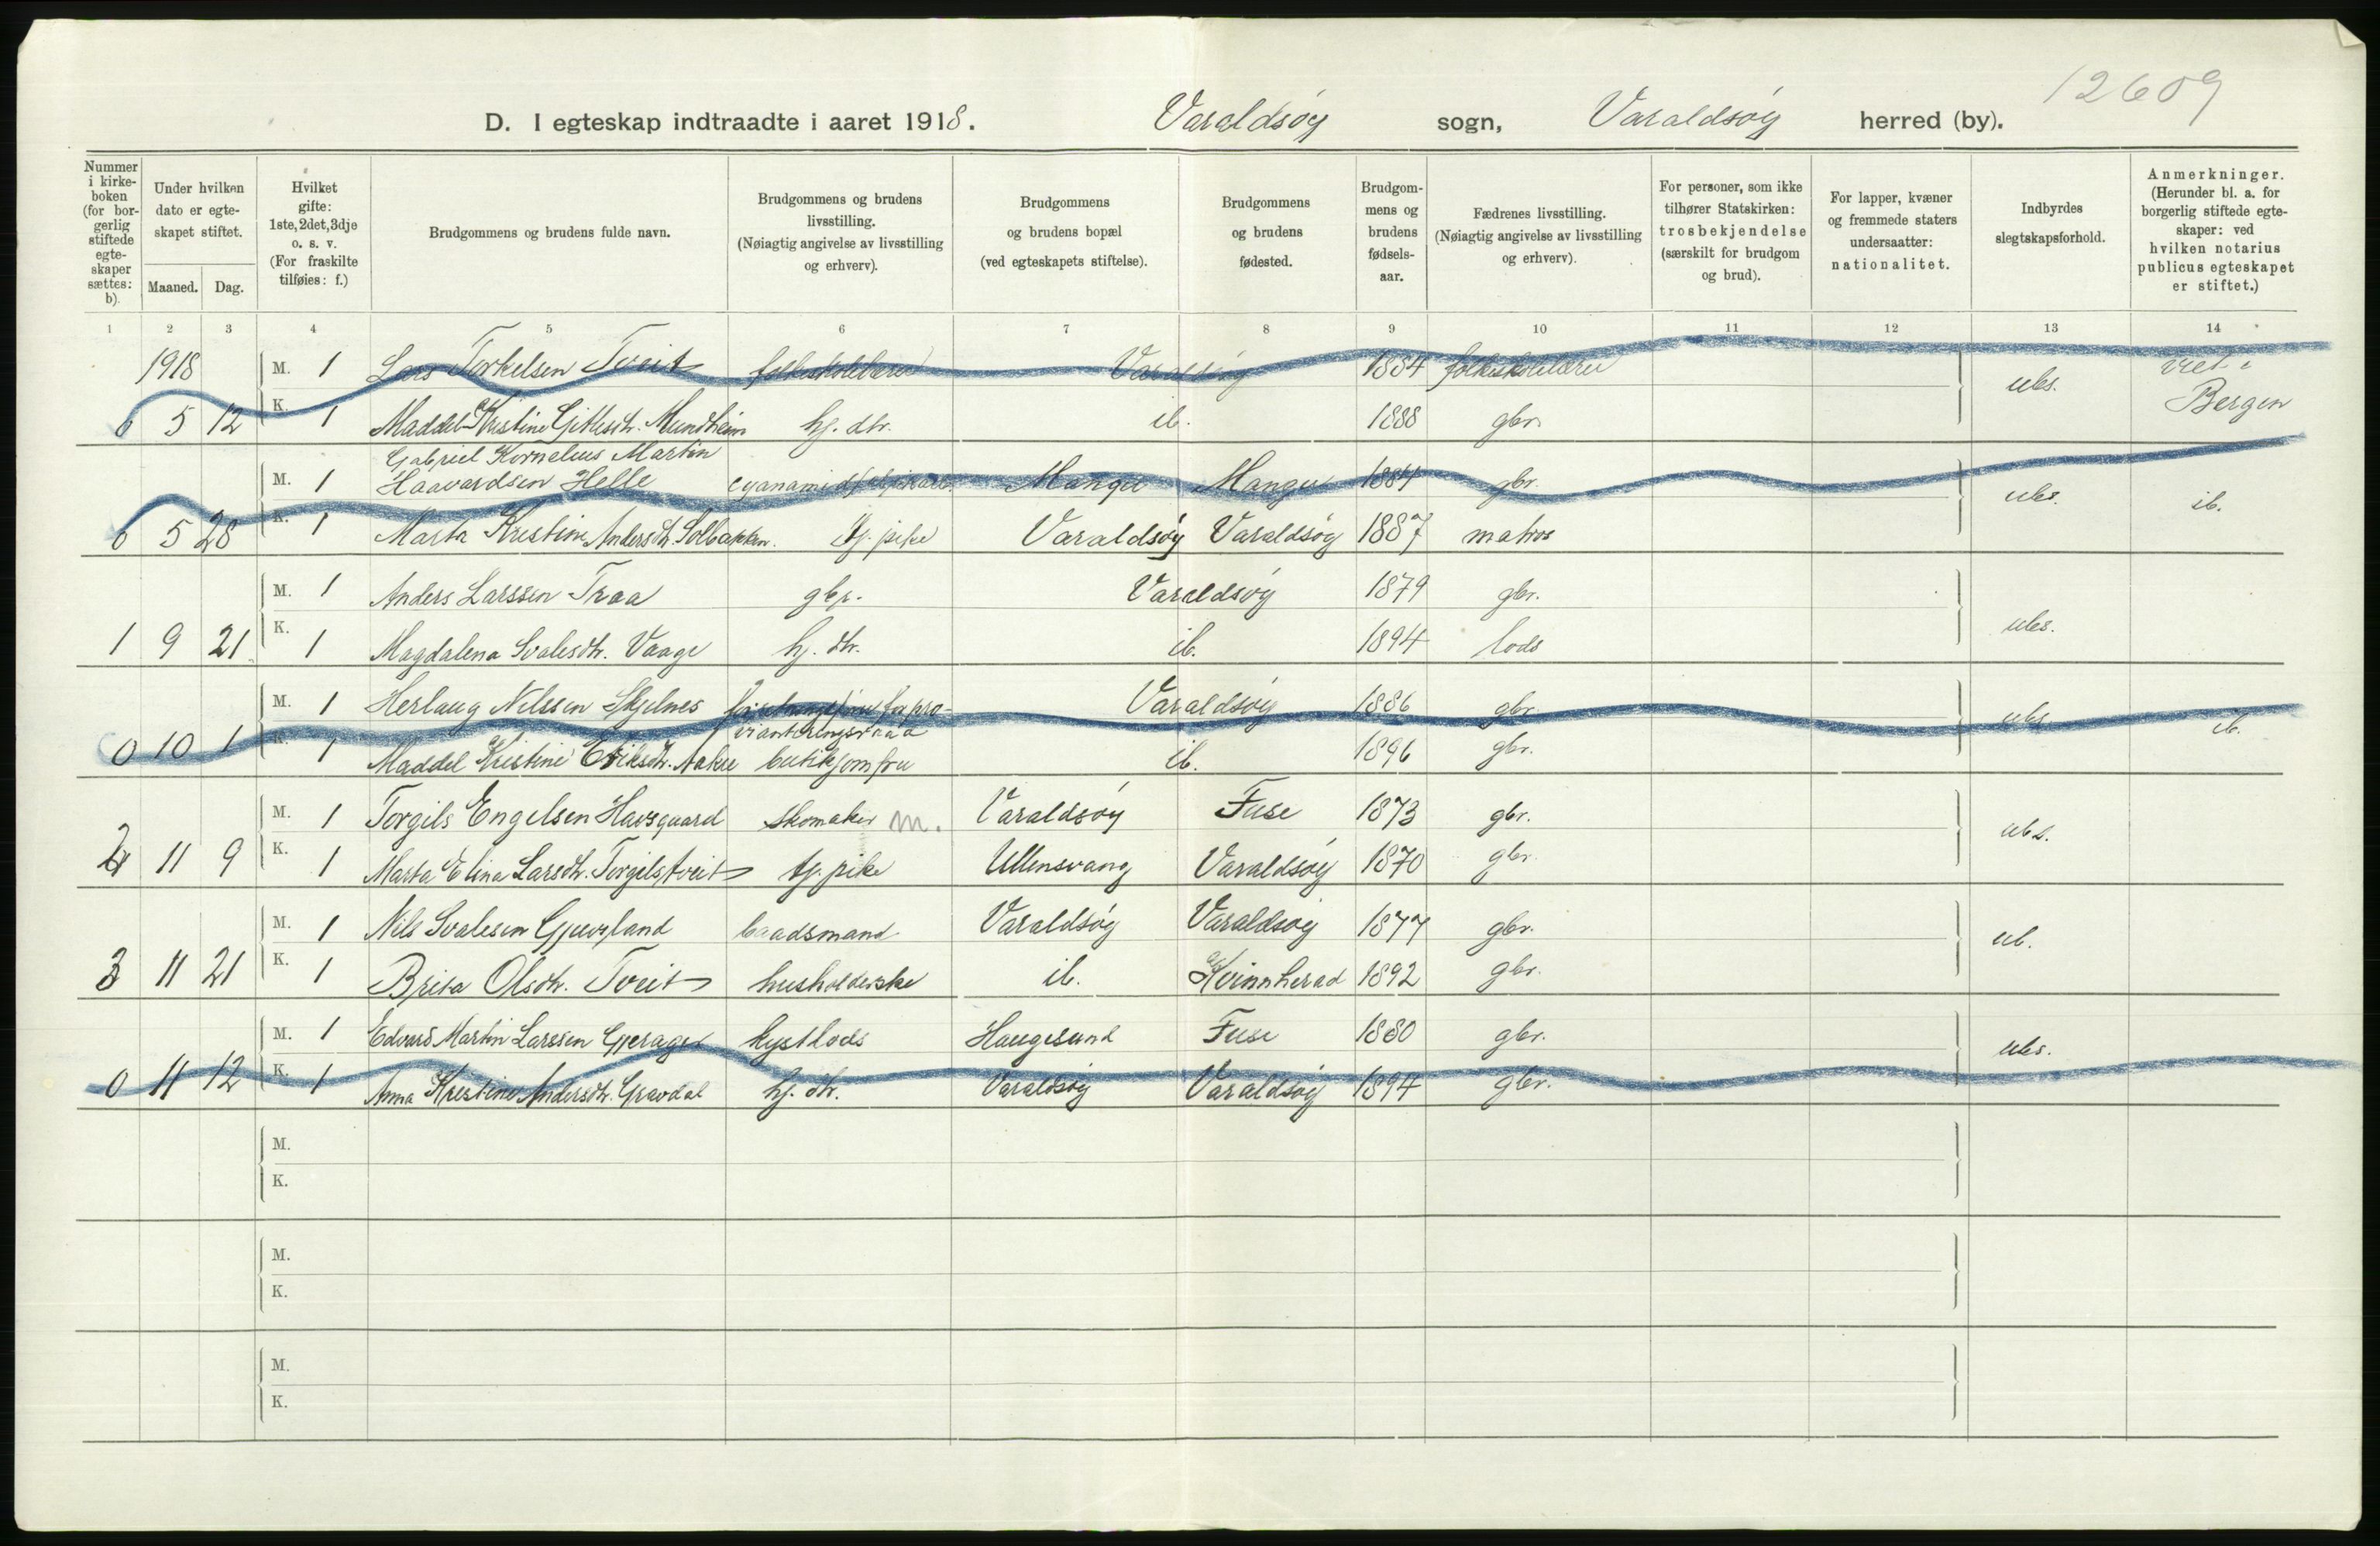 12609
D. I egteskap indtraadte i aaret 1918. Varaldsøy sogn, Varaldsøy herred (by).
Nummer i kirke- boken (for bor- gerlig stiftede egte- skaper sættes: b).
Under hvilken dato er egte- skapet stiftet.
Maaned. Dag.
Hvilket gifte: 1ste, 2det, 3dje o. s. v. (For fraskilte tilføies: f.)
Brudgommens og brudens fulde navn.
Brudgommens og brudens livsstilling. (Nøiagtig angivelse av livsstilling og erhverv).
Brudgommens og brudens bopæl (ved egteskapets stiftelse).
Brudgommens og brudens fødested.
Brudgom- mens og brudens fødsels- aar.
Fædrenes livsstilling. (Nøiagtig angivelse av livsstilling og erhverv).
For personer, som ikke tilhører Statskirken: trosbekjendelse (særskilt for brudgom og brud).
For lapper, kvæner og fremmede staters undersaatter: nationalitet.
Indbyrdes slegtskapsforhold.
Anmerkninger. (Herunder bl. a. for borgerlig stiftede egte- skaper: ved hvilken notarius publicus egteskapet er stiftet.)
1 2 3 4 5 6 7 8 9 10 11 12 13 14
1918 M. 1 Lars Torkelsen Tveit folkeskolelærer Varaldsøy 1884 folkeskolelærer ubs. viet i
6 5 12 K. 1 Maddel Kristine Gitlesdtr. Mundheim hj. dtr. ib. 1888 gbr. Bergen
Gabriel Kornelius Martin
M. 1 Haavardsen Helle Manger Manger 1884 gbr. ubs. ib.
6 5 28 K. 1 Marta Kristine Andersdtr. Solbakken. tj. pike Varaldsøy Varaldsøy 1887 matros
M. 1 Anders Larssen Traa gbr. Varaldsøy 1879 gbr. ubs.
1 9 21 K. 1 Magdalena Svalesdtr. Vaage hj. dtr. ib. 1894 lods
M. 1 Herlaug Nilssen Skjelnes for pro- Varaldsøy 1886 gbr. ubs. ib.
vianteringsraad
0 10 1 K. 1 Maddel Kristine Eriksdtr. Aakre butikjomfru ib. 1896 gbr.
M. 1 Torgils Engelsen Havsgaard skomaker m. Varaldsøy Fuse 1873 gbr. ubs.
2 11 9 K. 1 Marta Elina Larsdtr. Torgilstveit tj. pike Ullensvang Varaldsøy 1870 gbr.
M. 1 Nils Svalesen Gjuvsland baadsmand Varaldsøy Varaldsøy 1877 gbr. ub.
3 11 21 K. 1 Brita Olsdtr. Tveit husholderske ib. Kvinnherad 1892 gbr.
M. 1 Edvard Martin Larssen Gjerager kystlods Haugesund Fuse 1880 gbr. ubs.
0 11 12 K. 1 Anna Kristine Andersdtr. Gravdal hj. dtr. Varaldsøy Varaldsøy 1894 gbr.
M.
K.
M.
K.
M.
K.